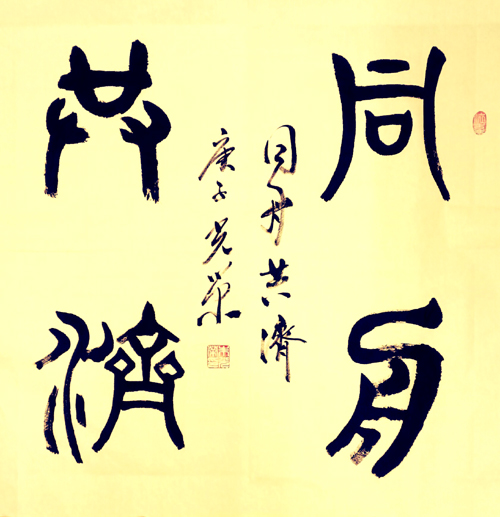 同舟
共濟
同舟共濟
庚子光